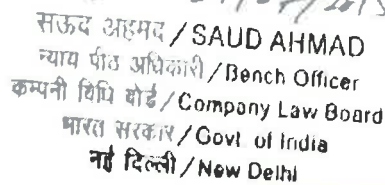 सऊद अहमद / SAUD AHMAD
न्याय पीठ अधिकारी / Bench Officer
कम्पनी विधि बोर्ड / Company Law Board
भारत सरकार / Govt. of India
नई दिल्ली / New Delhi